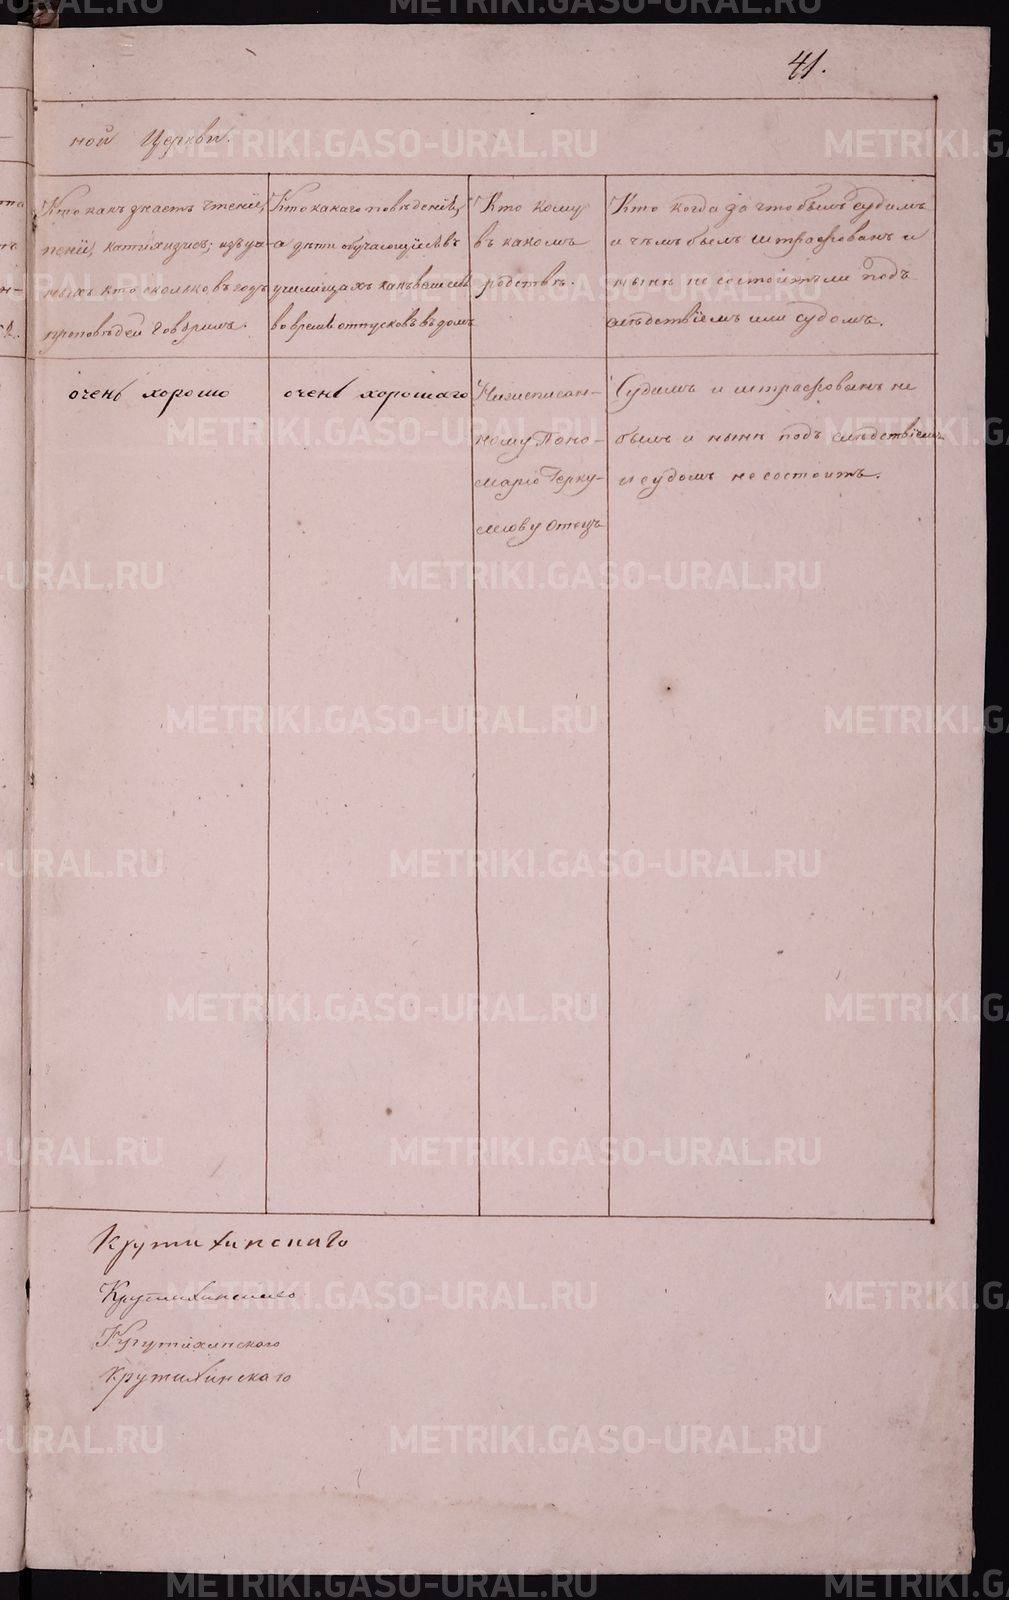 41.
ной Церкви.
Кто какъ знаетъ чтеніе,
пеніе, катихизисъ; изъ уче-
ныхъ кто сколько въ годъ
проповѣдей говоримъ.
Кто какаго поведеніе,
а дѣти обучающіеся въ
училищахъ какъ вели себя
во время отпусковъ въ домъ
Кто кому
въ какомъ
родствѣ.
Кто когда за что былъ судимъ
и чѣмъ былъ штрафованъ и
нынѣ не состоитъ ли подъ
слѣдствіемъ или судомъ.
очень хорошо
очень хорошаго
Нижеписан-
ному Поно-
марю Герку-
лову отецъ
Судимъ и штрафованъ не
былъ и нынѣ подъ слѣдствіемъ
и судомъ не состоитъ.
Крутихинскаго
Крутихинскаго
Крутихинского
Крутихинскаго
METRIKI.GASO-URAL.RU